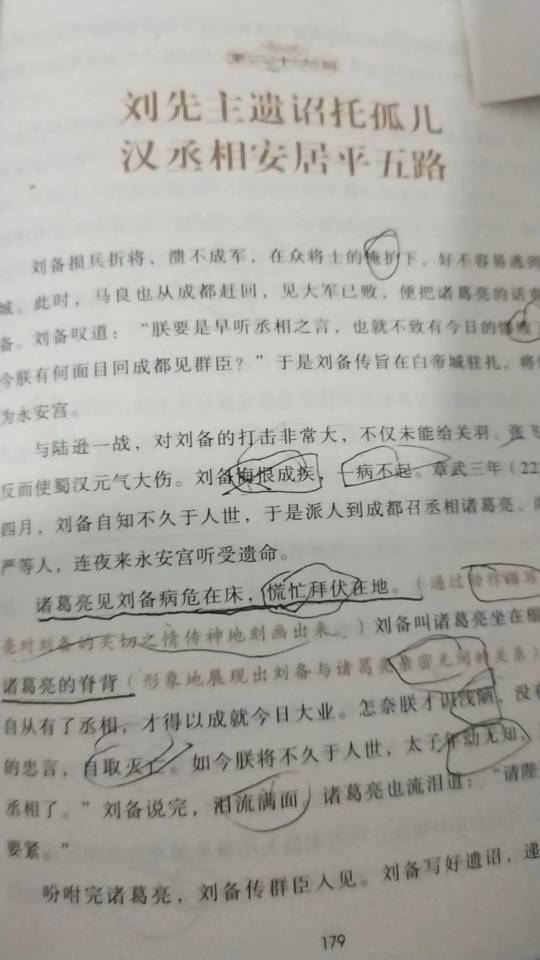 刘先主遗诏托孤儿
汉丞相安居平五路
刘备损兵折将，溃不成军，在众将士的掩护下，好不容易逃到
城。此时，马良也从成都赶回，见大军已败，便把诸葛亮的话
备。刘备叹道：“朕要是早听丞相之言，也就不致有今日的惨败
今朕有何面目回成都见群臣？”于是刘备传旨在白帝城驻扎，将
为永安宫。
与陆逊一战，对刘备的打击非常大，不仅未能给关羽、张飞
反而使蜀汉元气大伤。刘备悔恨成疾，一病不起。章武三年（22
四月，刘备自知不久于人世，于是派人到成都召丞相诸葛亮、
严等人，连夜来永安宫听受遗命。
诸葛亮见刘备病危在床，慌忙拜伏在地。（通过动作描写
亮对刘备的关切之情传神地刻画出来。）刘备叫诸葛亮坐在榻
诸葛亮的脊背（形象地展现出刘备与诸葛亮亲密无间的关系）
自从有了丞相，才得以成就今日大业。怎奈朕才识浅陋，没有
的忠言，自取灭亡。如今朕将不久于人世，太子年幼无知，
丞相了。”刘备说完，泪流满面。诸葛亮也流泪道：“请陛
要紧。”
吩咐完诸葛亮，刘备传群臣入见。刘备写好遗诏，递
179